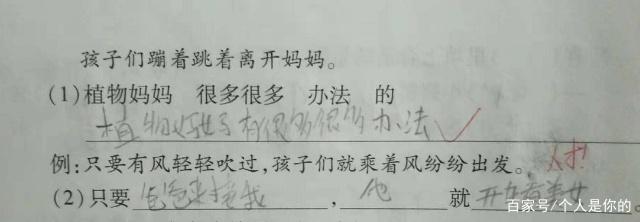 孩子们蹦着跳着离开妈妈。
(1)植物妈妈 很多很多 办法 的
植物妈妈有很多很多办法
例:只要有风轻轻吹过,孩子们就乘着风纷纷出发。 人才!
(2)只要 爸爸来接我 , 他 就 开始看美女
百家号/个人是你的